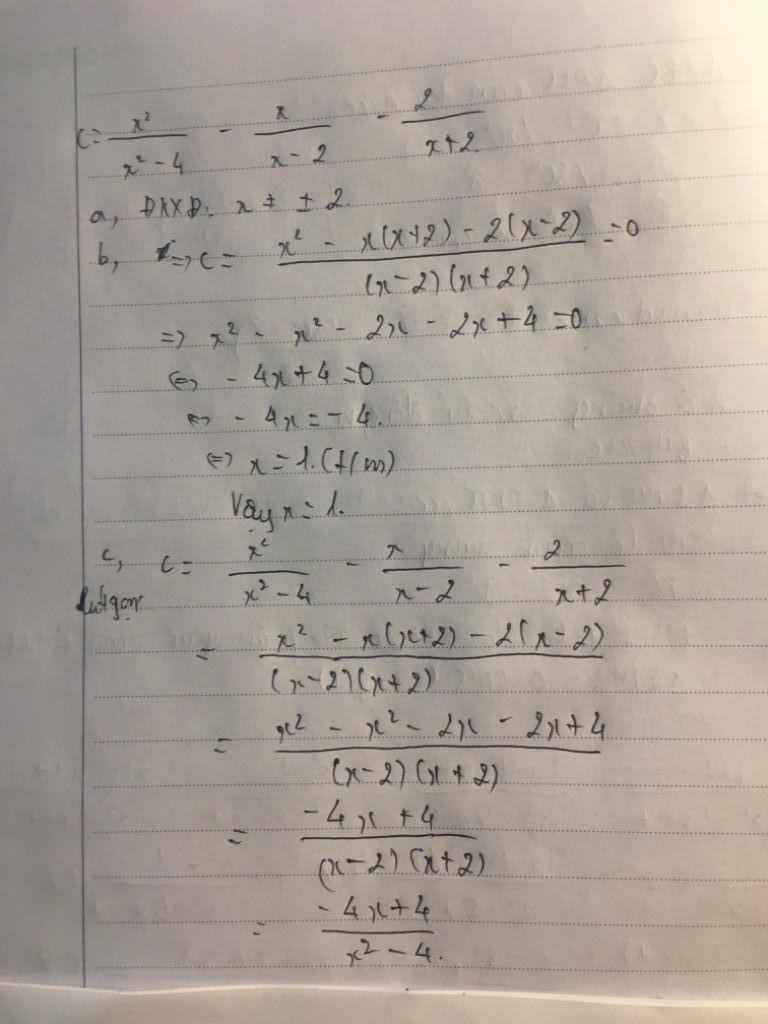 C = x²/(x² - 4) - x/(x - 2) - 2/(x + 2)
a, ĐKXĐ: x ≠ ± 2.
b, => C = (x² - x(x+2) - 2(x-2))/((x-2)(x+2)) = 0
=> x² - x² - 2x - 2x + 4 = 0
<=> - 4x + 4 = 0
<=> - 4x = - 4.
<=> x = 1. (t/m)
Vậy x = 1.
c, C = x²/(x² - 4) - x/(x - 2) - 2/(x + 2)
Rút gọn
= (x² - x(x+2) - 2(x - 2))/((x-2)(x+2))
= (x² - x² - 2x - 2x + 4)/((x-2)(x+2))
= (-4x + 4)/((x-2)(x+2))
= (-4x + 4)/(x² - 4).